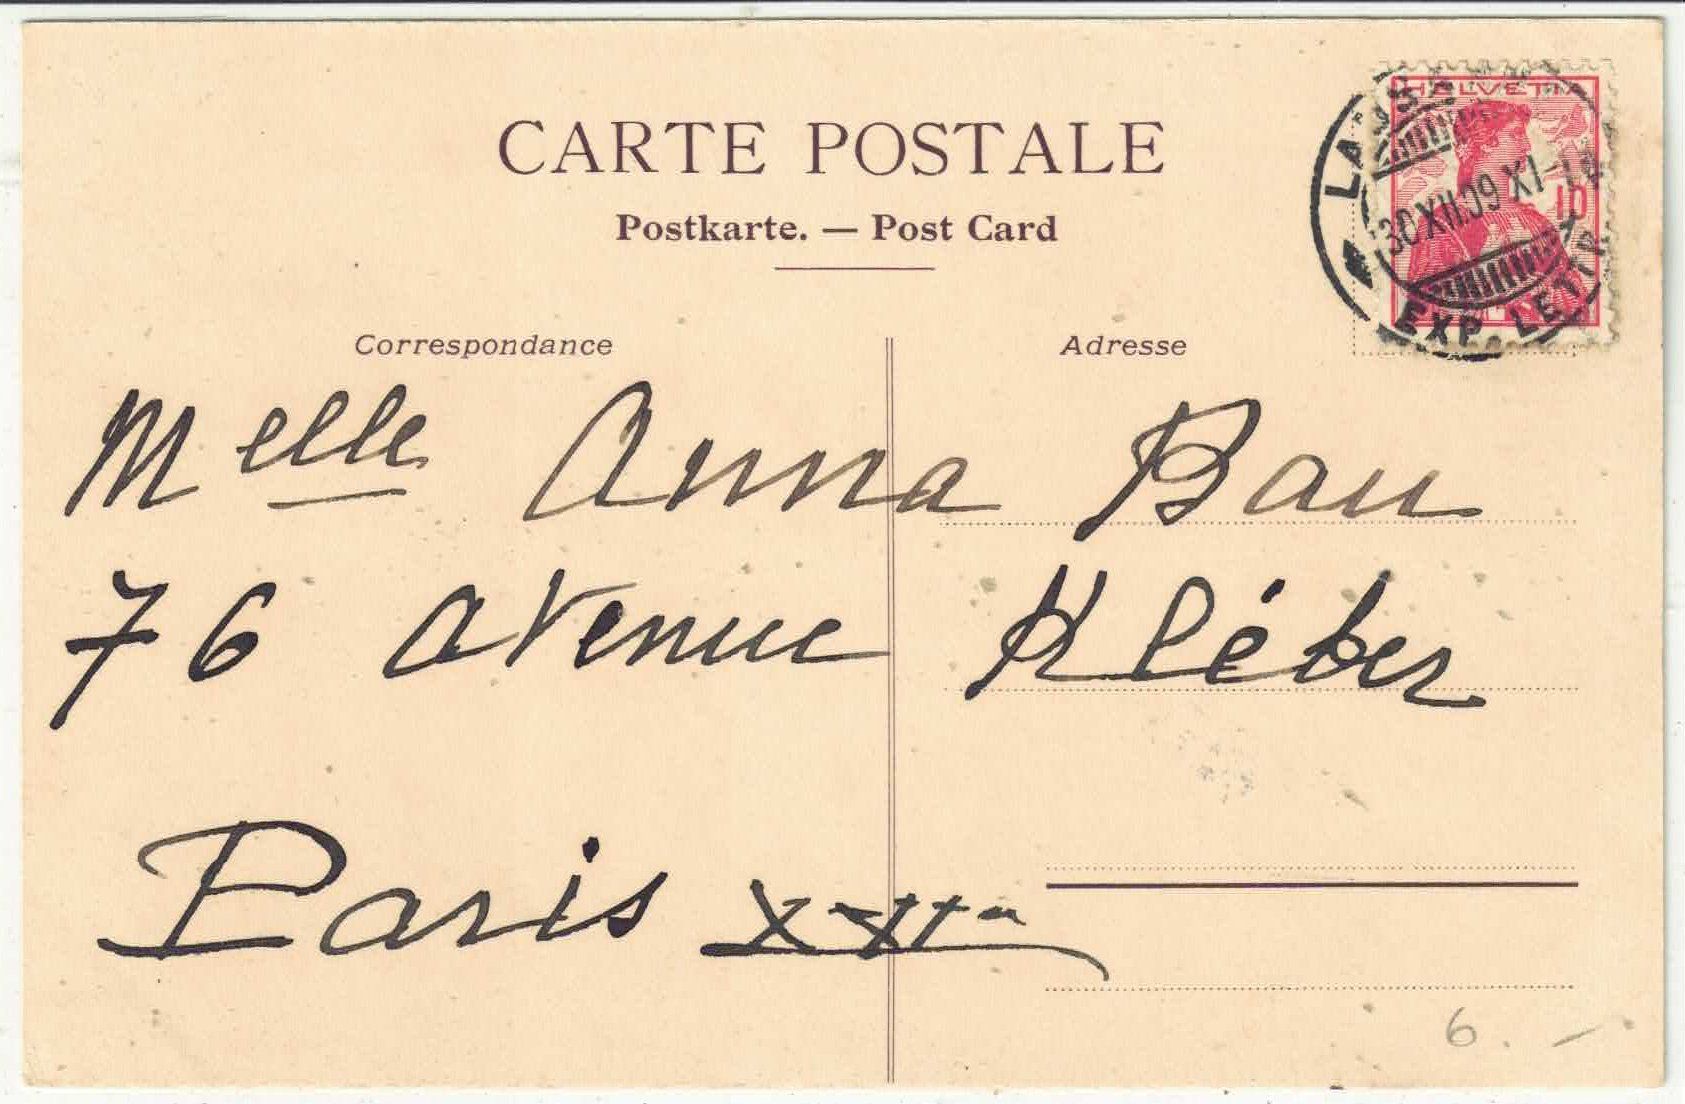 CARTE POSTALE
Postkarte. — Post Card
HELVETIA
10
30 XII.09 XI-
EXP. LETTR.
Correspondance
Adresse
Melle Anna Bau
76 Avenue Kléber
Paris
6. -